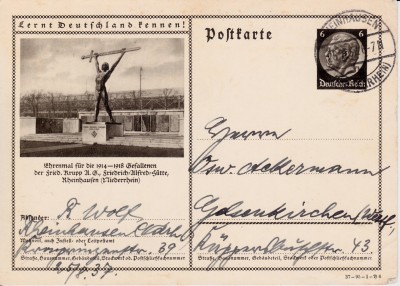 Lernt Deutschland kennen!
Postkarte
6 6
Deutsches Reich
RHEINHAUSEN
(RHEIN)
Ehrenmal für die 1914–1918 Gefallenen
der Fried. Krupp A.G., Friedrich-Alfred-Hütte,
Rheinhausen (Niederrhein)
Absender: R Wolf
Rheinhausen
Wohnort, auch Zustell- oder Leitpostamt
39
Straße, Hausnummer, Gebäudeteil, Stockwerk od. Postschließfachnummer
Herrn
Osw. Ackermann
Gelsenkirchen
43
Straße, Hausnummer, Gebäudeteil, Stockwerk oder Postschließfachnummer